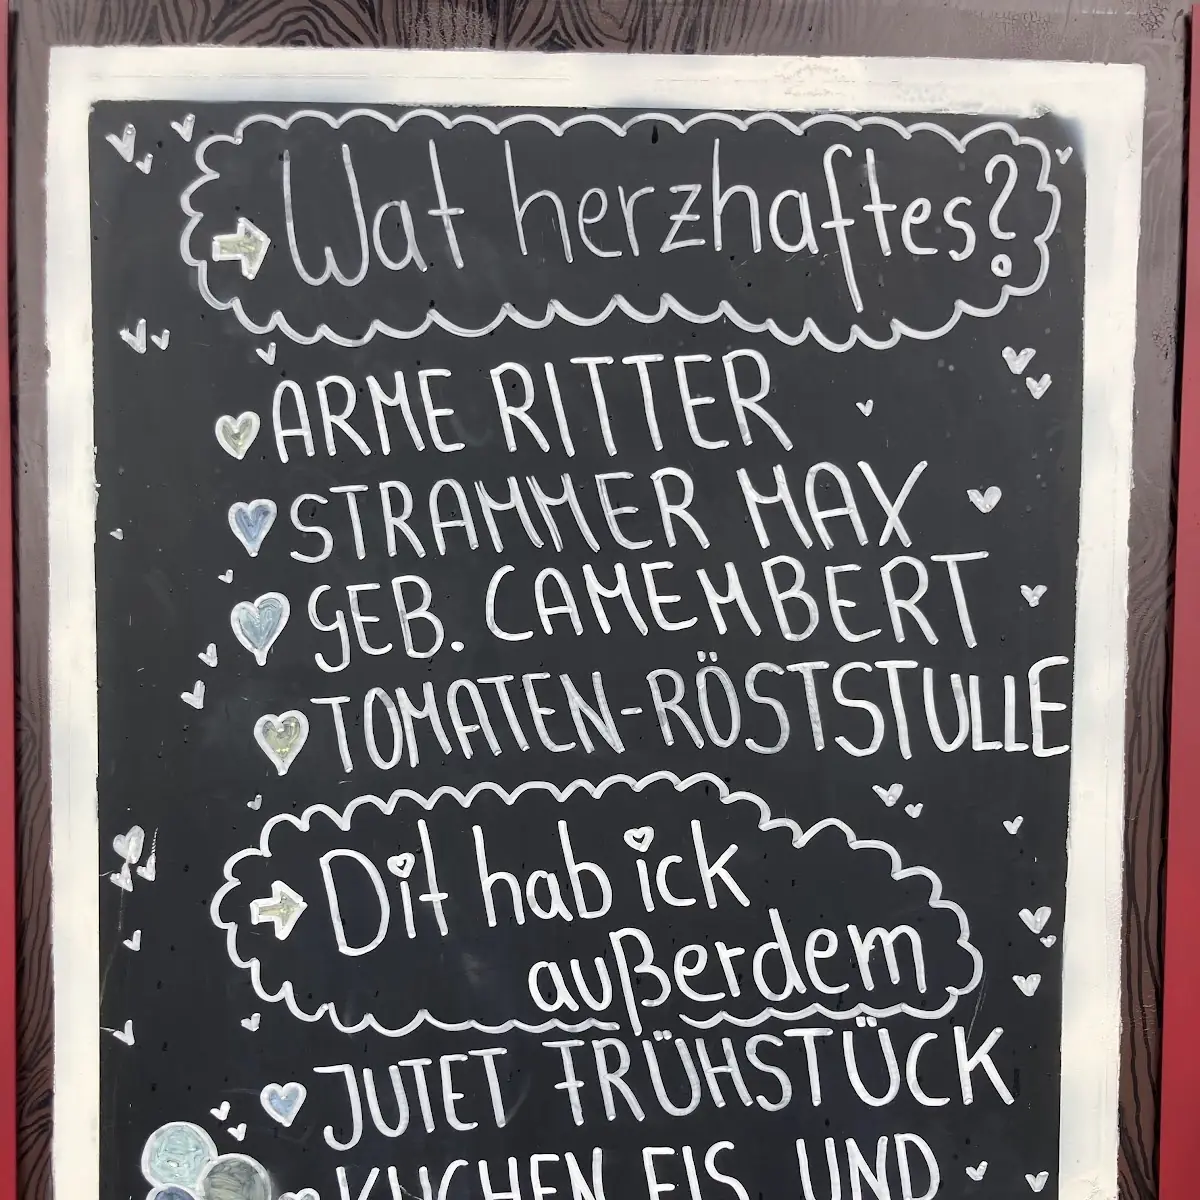 Wat herzhaftes?
ARME RITTER
STRAMMER MAX
GEB. CAMEMBERT
TOMATEN-RÖSTSTULLE
Dit hab ick
außerdem
JUTET FRÜHSTÜCK
KUCHEN EIS UND